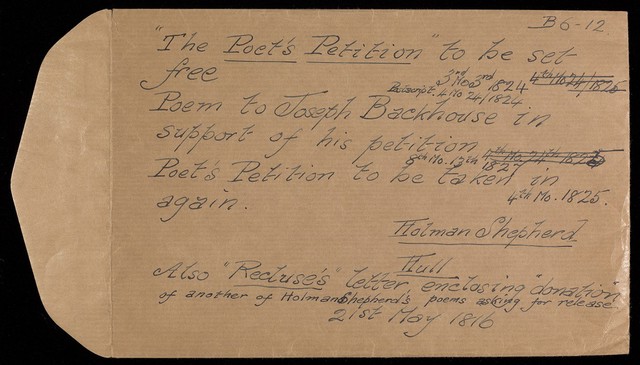 B6-12.
"The Poet's Petition" to be set
free 3rd No 3rd 1824
Postscript. 4 No 24/1824.
Poem to Joseph Backhouse in
support of his petition
Poet's Petition to be taken in
4th Mo. 1825.
again.
Holman Shepherd
Hull
Also "Recluse's" letter enclosing "donation"
of another of Holman Shepherd's poems asking for release.
21st May 1816